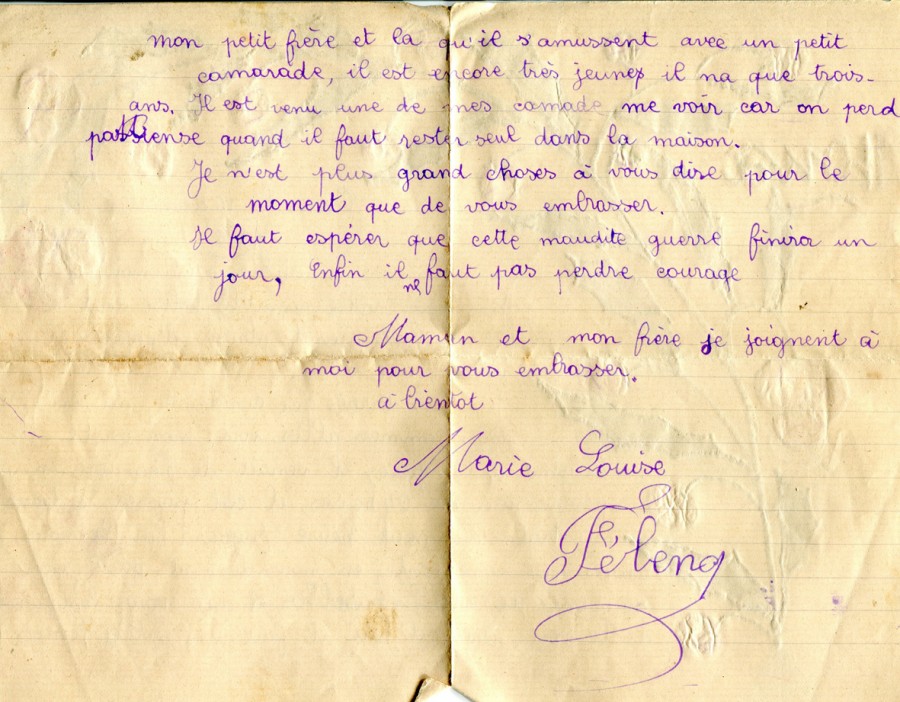 mon petit frère et la qu'il s'amussent avec un petit
camarade, il est encore très jeunex il na que trois-
ans. Il est venu une de mes camade me voir car on perd
patiense quand il faut rester seul dans la maison.
Je n'est plus grand choses à vous dire pour le
moment que de vous embrasser.
Il faut espérer que cette maudite guerre finira un
jour, Enfin il ne faut pas perdre courage
Maman et mon frère je joignent à
moi pour vous embrasser.
à bientot
Marie Louise
Féleng